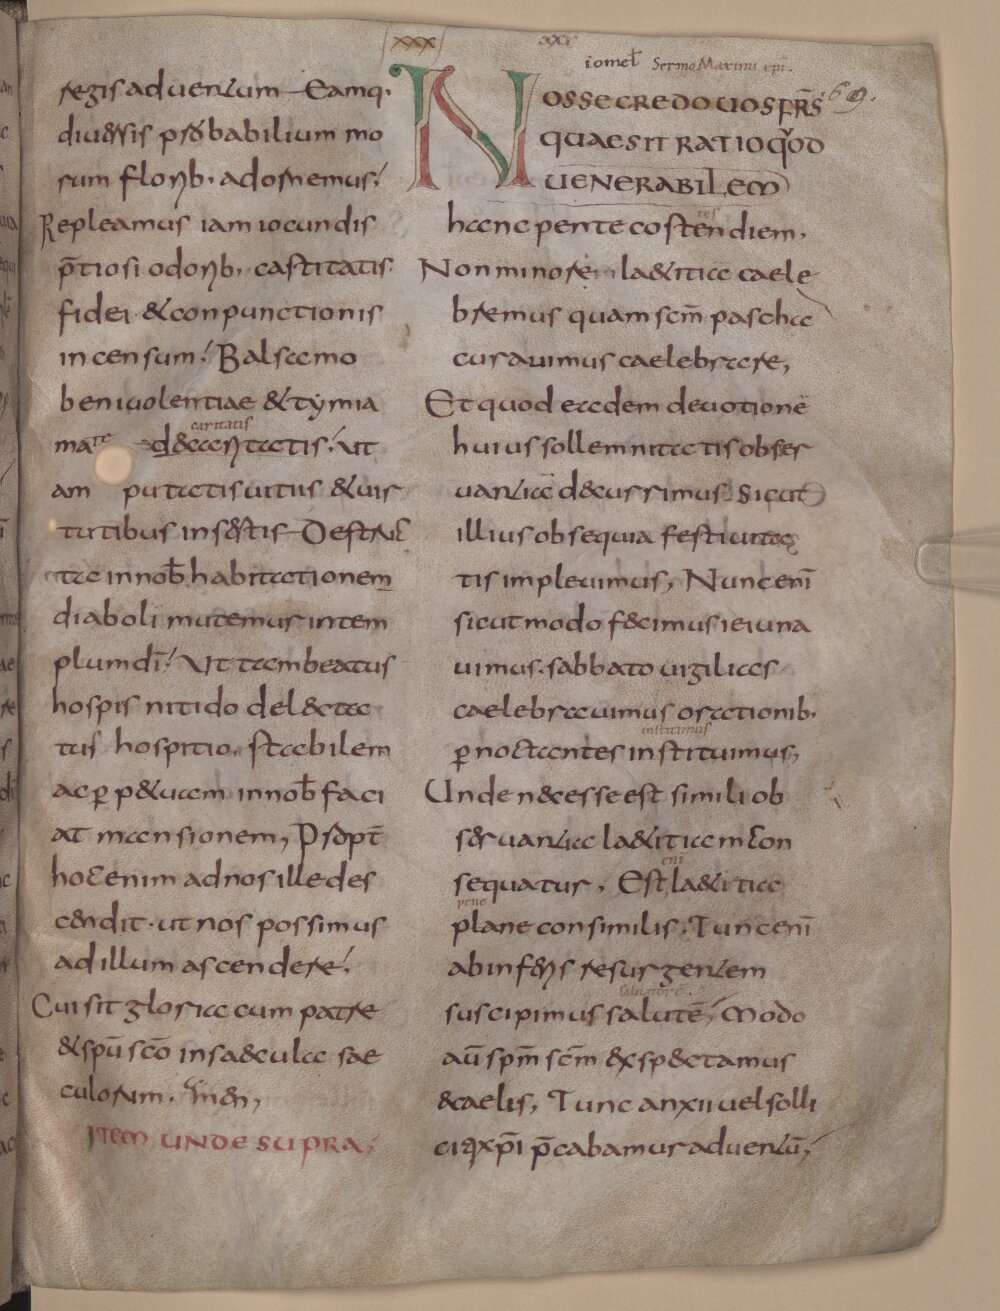 regis aduentum Eamq·
diuersis probabilium mo
rum florib· adornemus;
Repleamus iam iocundis
p̄tiosi odorib· castitatis
fidei & conpunctionis
incensum; Balsamo
beniuolentiae & tymia
caritatis
mate
ut
am putatis uitiis & uir
tutibus insertis Destruc
ta innob̄ habitationem
diaboli mutemur intem
plum dī; Ut tam beatus
hospis nitido delecta
tus hospitio, stabilem
ac ꝑp&uam innob̄ faci
at mansionem, Propt̄
hoc enim ad nos ille des
cendit· ut nos possimus
ad illum ascendere;
Cui sit gloria cum patre
& sp̄u sc̄o in saecula sae
culorum. Amen,
ITEM UNDE SUPRA;
xxx
xxx
iomel Sermo Maximi epī.
69.
NOSSE CREDO UOS FR̄S
QUAE SIT RATIO QUOD
UENERABILEM
hanc pentecosten diem,
Non minore, l&itia caele
bremus quam sc̄m pascha
curauimus caelebrare,
Et quod eadem deuotionē
huius sollemnitatis obser
uantia decurrimus. Sicut
illius obsequia festiuita
tis impleuimus, Nunc enī
sicut modo fecimus ieiuna
uimus· sabbato uigilias
caelebrauimus orationib·
institimus
ꝑnoctantes instituimus,
Unde necesse est simili ob
seruantia l&itia m con
enī
sequatur, Est l&itia
pene
plane consimilis, Tunc enī
ab inferis resurgentem
saluatorē.
suscipimus salutē, Modo
aū sp̄m sc̄m expectamus
e caelis, Tunc anxii uel solli
citi xp̄i p̄cabamur aduentū,